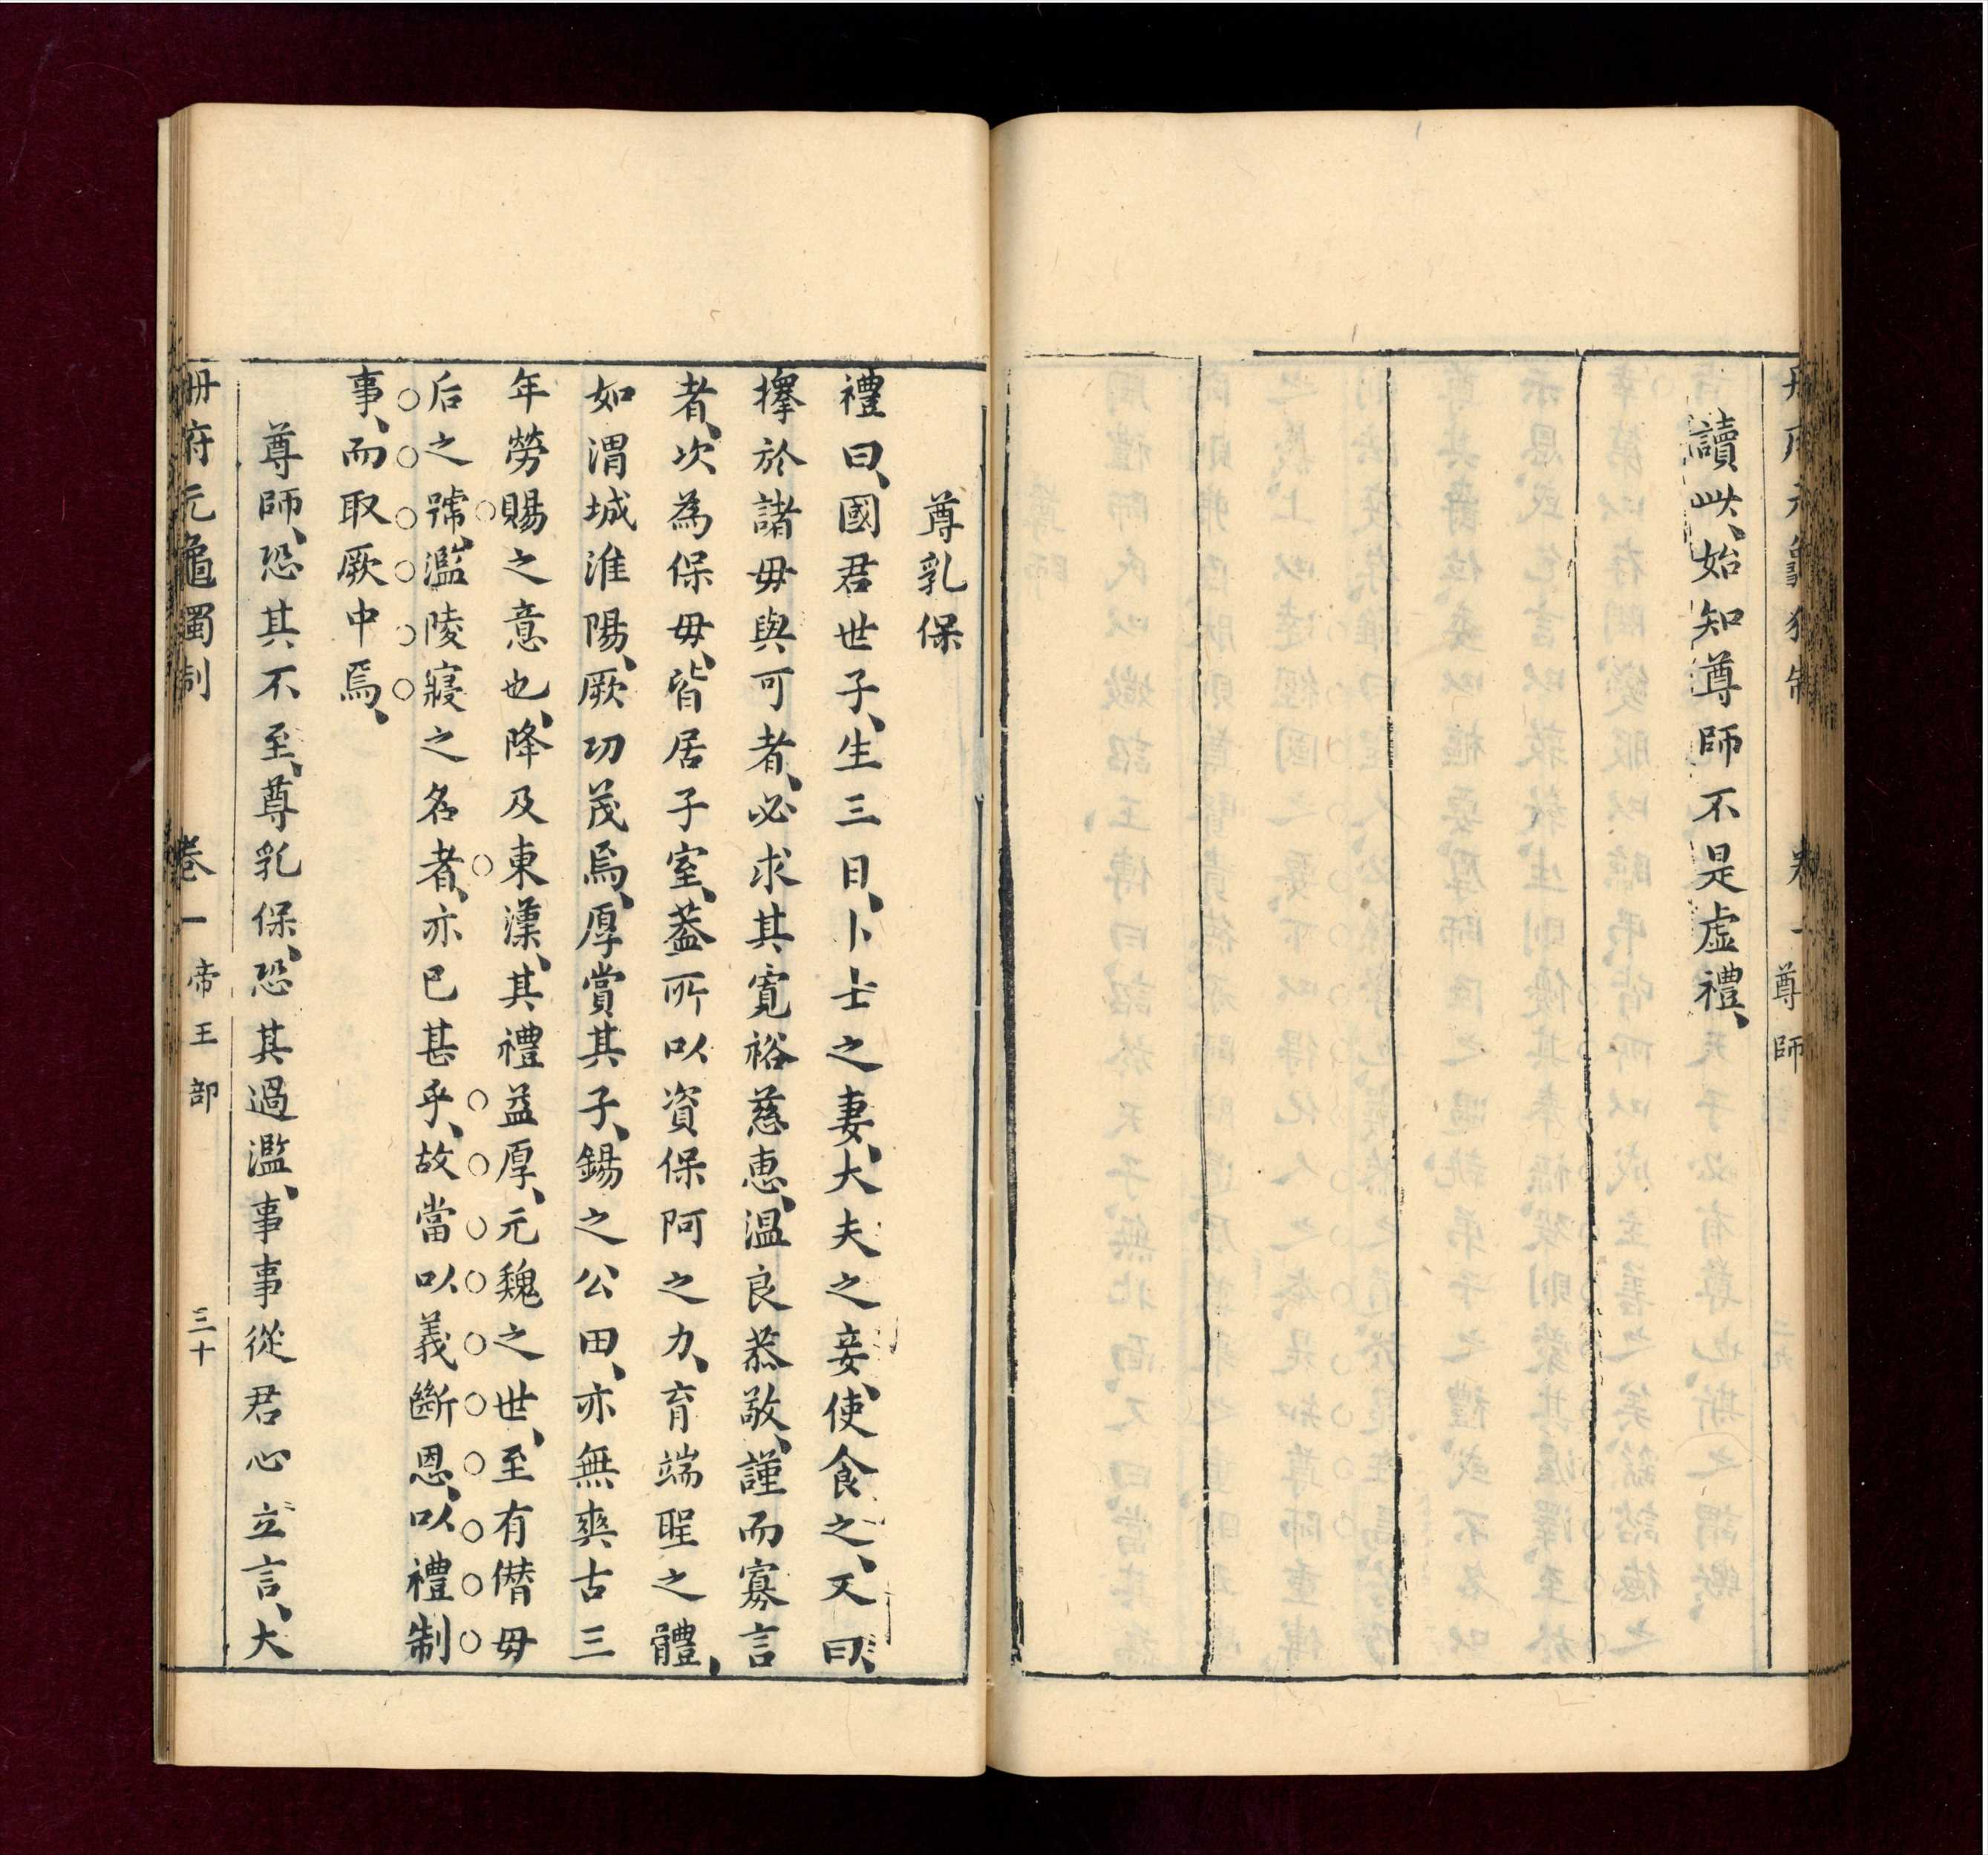 冊府元龜獨制　卷一　尊師
讀此、始知尊師不是虛禮、
尊乳保
禮曰、國君世子、生三日、卜士之妻、大夫之妾、使食之、又曰、
擇於諸毋與可者、必求其寬裕慈惠、溫良恭敬、謹而寡言
者、次為保毋、皆居子室、葢所以資保阿之力、育端聖之體、
如渭城淮陽、厥功茂焉、厚賞其子、錫之公田、亦無爽古三
年勞賜之意也、降及東漢、其禮益厚、元魏之世、至有僭毋
后之號、濫陵寢之名者、亦已甚乎、故當以義斷恩、以禮制
事、而取厥中焉、
尊師、恐其不至、尊乳保、恐其過濫、事事從君心立言、大
冊府元龜獨制　卷一　帝王部　三十